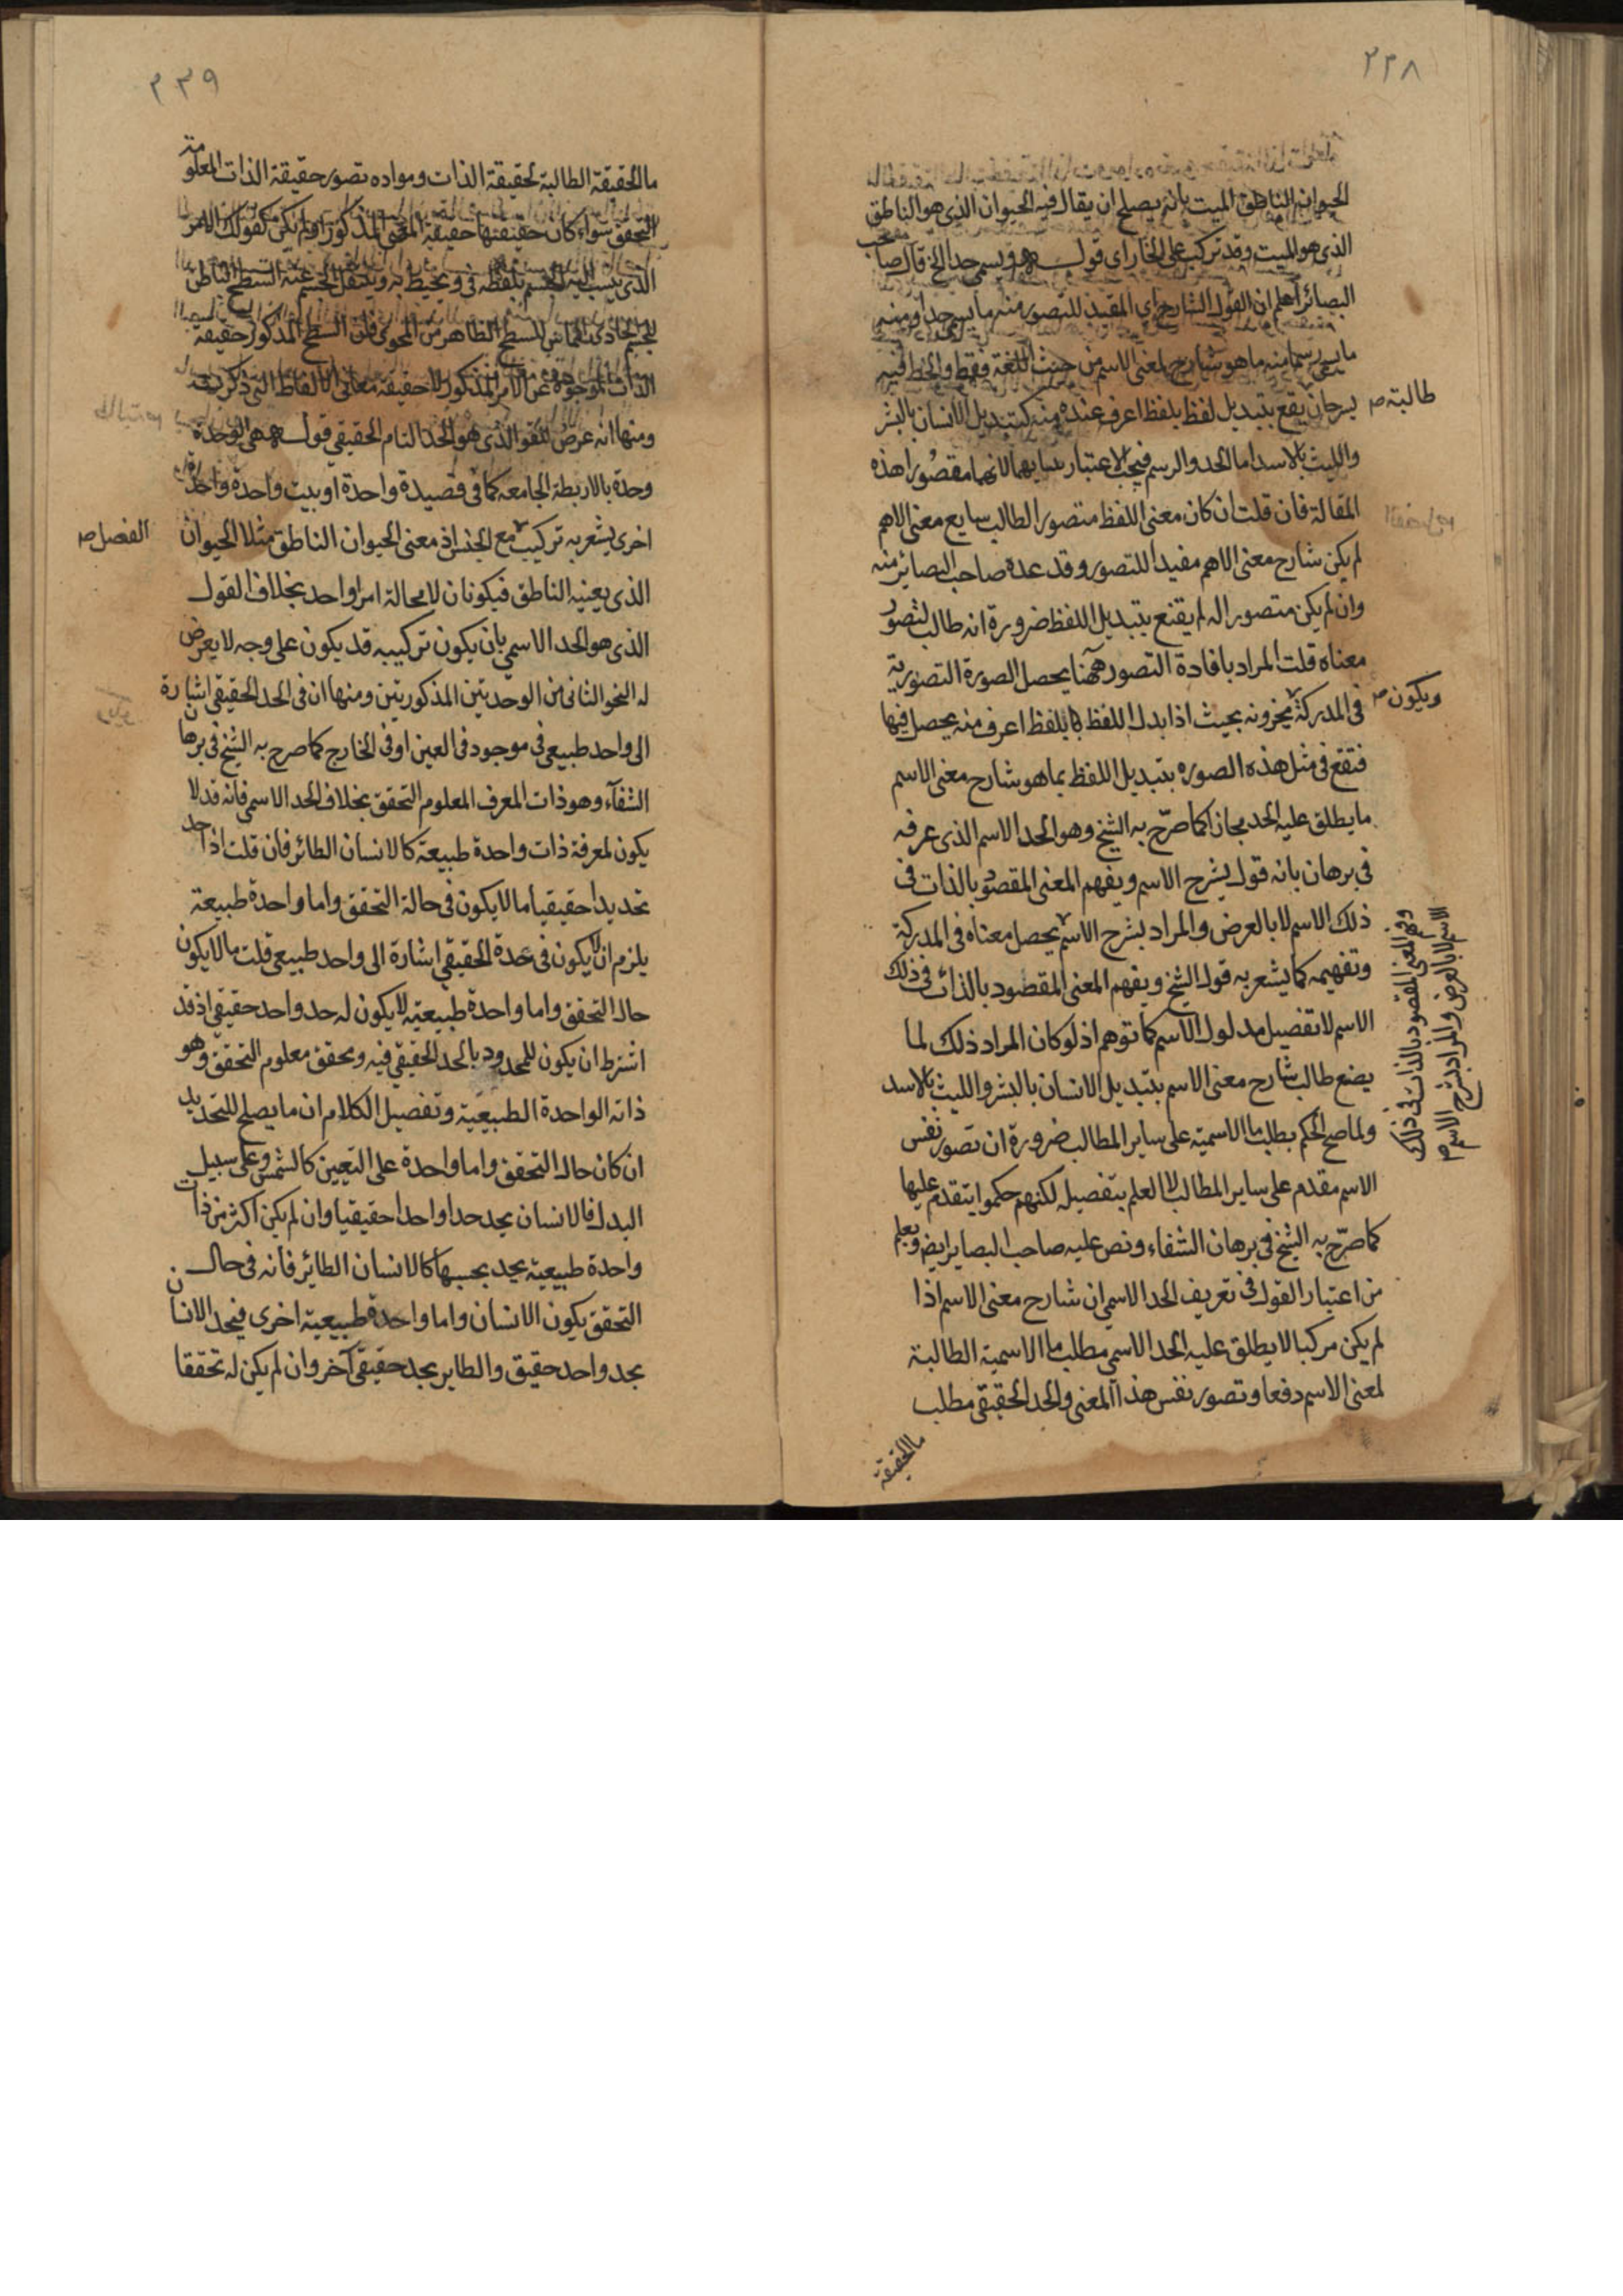 ٢٣٨
الحيوان الناطق الميت بانه يصلح ان يقال فيه الحيوان الذى هو الناطق
الذى هو الميت وقد تركب على الخار اى قوله ويسمى حدا الخ قال صاحب
البصائر اعلم ان القول الشارح اى المفيد للتصور منه ما يسمى حدا ومنه
ما يسمى رسما منه ما هو شارح لمعنى الاسم من حيث اللغة فقط والخط فيه
يسير حان يقع بتبديل لفظ بلفظ اعرف عنده منه كتبديل الانسان بالبشر
طالبة صح
والليث بالاسد اما الحد والرسم فيجب الاعتبار بهما لانهما مقصورا هذه
المقالة فان قلت ان كان معنى اللفظ متصور الطالب سايع معنى الاهم
لم يكن شارح معنى الاهم مفيدا للتصور وقد عده صاحب البصائر منه
وان لم يكن متصورا له لم يقنع بتبديل اللفظ ضرورة انه طالب لتصور
معناه قلت المراد بافادة التصور ههنا يحصل الصورة التصورية
فى المدركة مخزونه بحيث اذا بدل اللفظ بلفظ اعرف منه يحصل فيها
ويكون صح
فتقع فى مثل هذه الصوره بتبديل اللفظ بما هو شارح معنى الاسم
ما يطلق عليه الحد مجازا كما صرّح به الشيخ وهو الحد الاسم الذى عرفه
فى برهان بانه قول يشرح الاسم ويفهم المعنى المقصود بالذات فى
ذلك الاسم لا بالعرض والمراد بشرح الاسم يحصل معناه فى المدركة
وتفهيمه كما يشعر به قول الشيخ ويفهم المعنى المقصود بالذات فى ذلك
الاسم لا تفصيل مدلول الاسم كما توهم اذ لو كان المراد ذلك لما
يضع طالب شارح معنى الاسم بتبديل الانسان بالبشر والليث بالاسد
ولما صح الحكم بطلب ما الاسمية على ساير المطالب ضرورة ان تصور نفس
الاسم مقدم على ساير المطالب لا العلم بتفصيله لكنهم حكموا بتقدم عليها
كما صرّح به الشيخ فى برهان الشفاء ونص عليه صاحب البصاير ايض ويعلم
من اعتبار القول فى تعريف الحد الاسمى ان شارح معنى الاسم اذا
لم يكن مركبا لا يطلق عليه الحد الاسمى مطلب ما الاسمية الطالبة
لمعنى الاسم دفعا وتصور نفس هذا المعنى والحد الحقيقى مطلب
ما الحقيقة
ويفهم المعنى المقصود بالذات فى ذلك
الاسم لا بالعرض والمراد بشرح الاسم
٢٣٩
ما الحقيقة الطالبة لحقيقة الذات ومواده تصور حقيقة الذات المعلومة
التحقق سواء كان حقيقتها حقيقة المعنى المذكور او لم يكن كقولك الامر
الذى ينسب اليه الجسم بلفظه فى ويحيط به وينتقل الجسم عنه السطح الباطن
للجسم الحاوى المماس للسطح الظاهر من المحوى فان السطح المذكور حقيقة
الذات الموجودة عن الامر المذكور لا حقيقة معانى الالفاظ التى ذكرت
ومنها انه عرض للقول الذى هو الحد التام الحقيقى قوله هى الوحدة
وحدة بالاربطة الجامعه كما فى قصيدة واحدة او بيت واحدة واحدة
اخرى يشعر به تركيب مع الجنس اذ معنى الحيوان الناطق مثلا الحيوان
الفصل صح
الذى يعنيه الناطق فيكونان لا محالة امرا واحد بخلاف القول
الذى هو الحد الاسمى بان يكون تركيبه قد يكون على وجه لا يعرض
له النحو الثانى من الوحديتين المذكوريتين ومنها ان فى الحد الحقيقى اشارة
الى واحد طبيعى فى موجود فى العين او فى الخارج كما صرح به الشيخ فى برهان
الشفآء وهو ذات المعرف المعلوم التحقق بخلاف الحد الاسمى فانه قد لا
يكون لمعرفة ذات واحدة طبيعة كالانسان الطائر فان قلت اذا حد
تحديدا حقيقيا ما لا يكون فى حالة التحقق واما واحدة طبيعة
يلزم ان لا يكون فى عدة الحقيقى اشارة الى واحد طبيعى قلت ما لا يكون
حال التحقق واما واحدة طبيعية لا يكون له حد واحد حقيقى اذ قد
اشترط ان يكون للمحدود بالحد الحقيقى فيه ومحقق معلوم التحقق وهو
ذاته الواحدة الطبيعية وتفصيل الكلام ان ما يصلح للتحديد
ان كان حال التحقق واما واحدة على التعيين كالشمس وعلى سبيل
البدل فالانسان يحد حدا واحدا حقيقيا وان لم يكن اكثر من ذات
واحدة طبيعية يحد بحسبها كالانسان الطائر فانه فى حال
التحقق يكون الانسان واما واحدة طبيعية اخرى فيحد الانسان
بحد واحد حقيق والطاير بحد حقيقى آخر وان لم يكن له تحققا